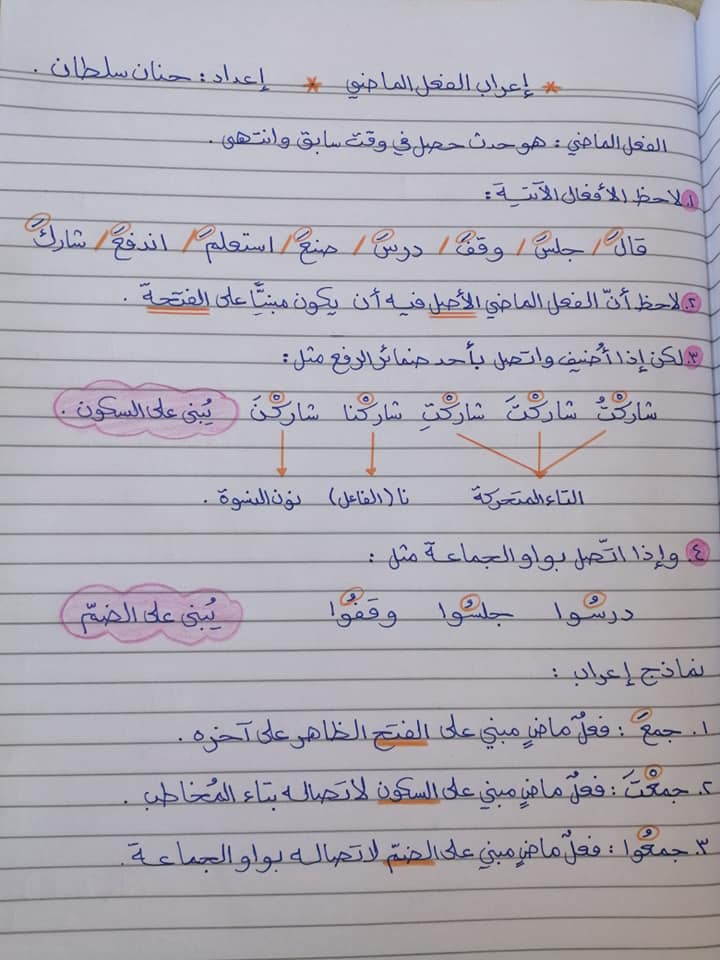 * إعراب الفعل الماضي * إعداد : حنان سلطان .
الفعل الماضي : هو حدث حصل في وقت سابق وانتهى .
١. لاحظ الأفعال الآتية :
قالَ / جلسَ / وقفَ / درسَ / صنعَ / استعلمَ / اندفعَ / شاركَ
٢. لاحظ أنّ الفعل الماضي الأصل فيه أن يكون مبنيًّا على الفتحة .
٣. لكن إذا أُضيف واتصل بأحد ضمائر الرفع مثل :
شاركْتُ شاركْتَ شاركْتِ شاركْنا شاركْنَ يُبنى على السكون .
التاء المتحركة نا (الفاعل) نون النسوة .
٤ وإذا اتّصل بواو الجماعة مثل :
درسُوا جلسُوا وقفُوا يُبنى على الضمّ
نماذج إعراب :
١. جمعَ : فعلٌ ماضٍ مبني على الفتح الظاهر على آخره .
٢. جمعْتَ : فعلٌ ماضٍ مبني على السكون لاتصاله بتاء المُخاطب .
٣. جمعُوا : فعلٌ ماضٍ مبني على الضمّ لاتصاله بواو الجماعة .